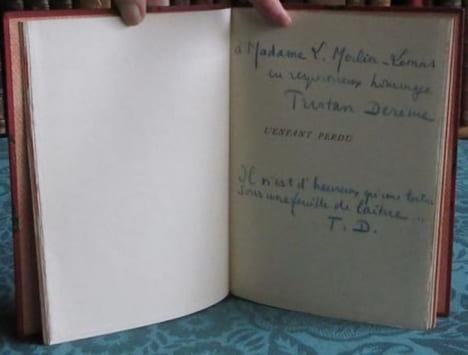 à Madame Y. Morlin-Lemas
en respectueux hommage
Tristan Derème
L'ENFANT PERDU
Il n'est d'heureux qu'une tortue
Sous une feuille de laitue...
T. D.